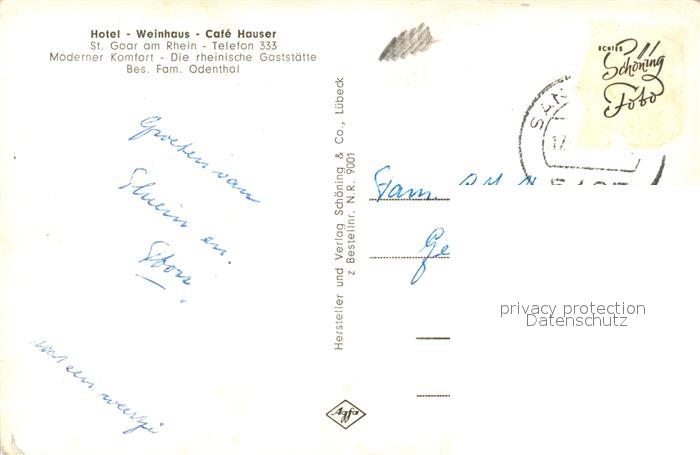 Hotel - Weinhaus - Café Hauser
St. Goar am Rhein - Telefon 333
Moderner Komfort - Die rheinische Gaststätte
Bes. Fam. Odenthal
Groeten van
en
Hersteller und Verlag Schöning & Co., Lübeck
Z Bestellnr. N.R. 9001
Agfa
ECHTES
Schöning
Foto
SAN
17
Fam.
Ge
privacy protection
Datenschutz